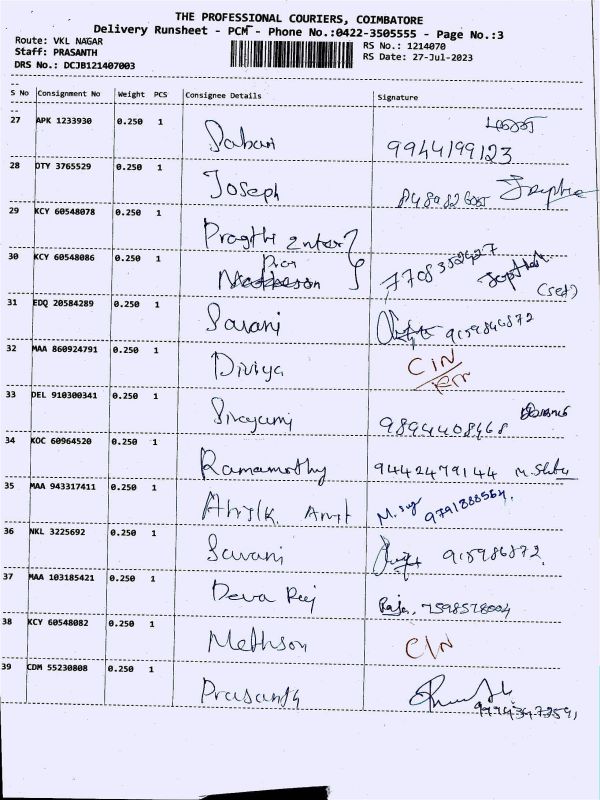 THE PROFESSIONAL COURIERS, COIMBATORE
Delivery Runsheet - PCM - Phone No.:0422-3505555 - Page No.:3
Route: VKL NAGAR
Staff: PRASANTH
DRS No.: DCJB121407003
RS No.: 1214070
RS Date: 27-Jul-2023
S No Consignment No Weight PCS Consignee Details Signature
27 APK 1233930 0.250 1 Sabari 9944199123
28 DTY 3765529 0.250 1 Joseph
29 KCY 60548078 0.250 1 Pragthi
30 KCY 60548086 0.250 1
31 EDQ 20584289 0.250 1 Savani 9159846872
32 MAA 860924791 0.250 1 Diviya C/N
33 DEL 910300341 0.250 1 9894408468
34 KOC 60964520 0.250 1 Ramamorthy 9442479144
35 MAA 943317411 0.250 1 9791888564.
36 NKL 3225692 0.250 1 Savani 915986872.
37 MAA 103185421 0.250 1 Deva Raj Raja, 7598578004
38 KCY 60548082 0.250 1 Methson C/N
39 CDM 55230808 0.250 1 Prasanth